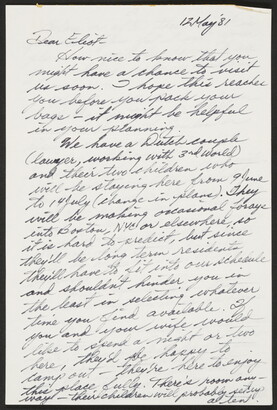 12 May '81
Dear Eliot -
How nice to know that you
might have a chance to visit
us soon. I hope this reaches
you before you pack your
bags - it might be helpful
in your planning.
We have a Dutch couple
(lawyer, working with 3rd World)
and their two children who
will be staying here from 9 June
to 19 July (change in plans). They
will be making occasional forays
into Boston, NYC or elsewhere, so
it is hard to predict, but since
they'll be long term residents
they'll have to fit into our schedule
and shouldn't hinder you in
the least in selecting whatever
time you find available. If
you and your wife would
like to spend a night or two
here, they'd be happy to
camp out - they're here to enjoy
this place fully. There's room any-
way - their children will probably set up
a tent.